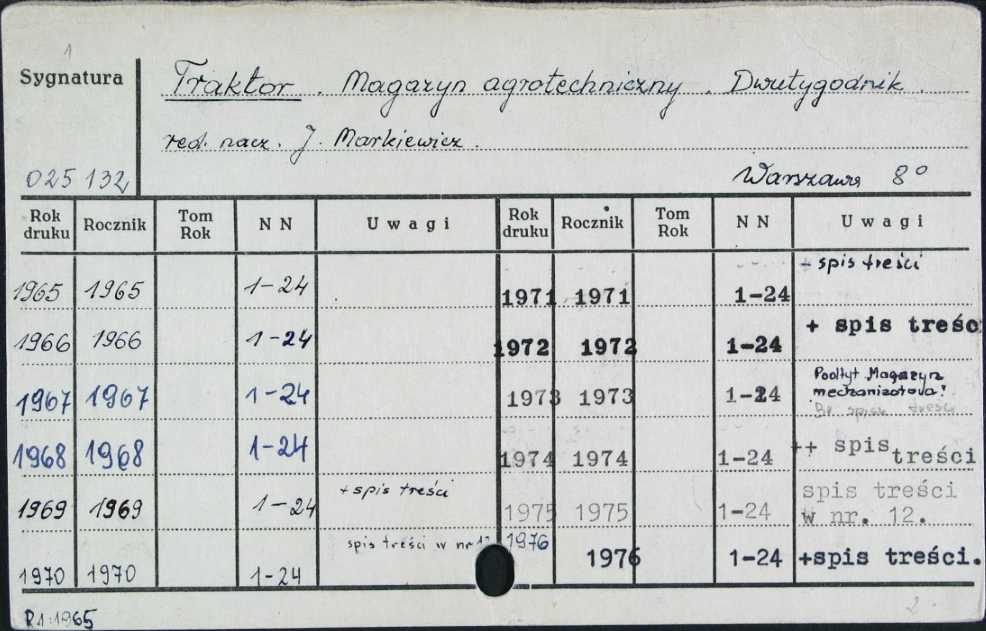 1
Sygnatura
Traktor. Magazyn agrotechniczny. Dwutygodnik.
red. nacz. J. Markiewicz.
025 132
Warszawa 8°
Rok druku Rocznik Tom Rok N N Uwagi Rok druku Rocznik Tom Rok N N Uwagi
1965 1965 1-24 1971 1971 1-24 + spis treści
1966 1966 1-24 1972 1972 1-24 + spis treśc
1967 1967 1-24 1973 1973 1-24 Podtyt. Magazyn
spis treści
1968 1968 1-24 1974 1974 1-24 ++ spis treści
1969 1969 1-24 + spis treści 1975 1975 1-24 spis treści
w nr. 12.
1970 1970 1-24 spis treści w nr 1976 1976 1-24 +spis treści.
R1:1965
2